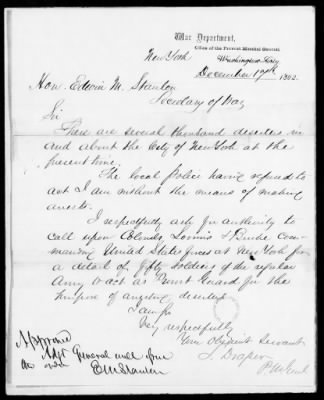 War Department,
Office of the Provost Marshal General,
New York Washington City
December 19th 1862.
Hon. Edwin M. Stanton
Secretary of War
Sir
There are several thousand deserters in
and about the City of New York at the
present time.
The local Police having refused to
act I am without the means of making
arrests.
I respectfully ask for authority to
call upon Colonels Loomis & Burke com-
manding United States forces at New York for
a detail of fifty soldiers of the regular
Army to act as Provost Guard for the
purpose of arresting deserters
I am Sir
Very respectfully
Your Obedient Servant
S. Draper
P. M. Genl.
Approved
Adjt General will give
an order
E M Stanton